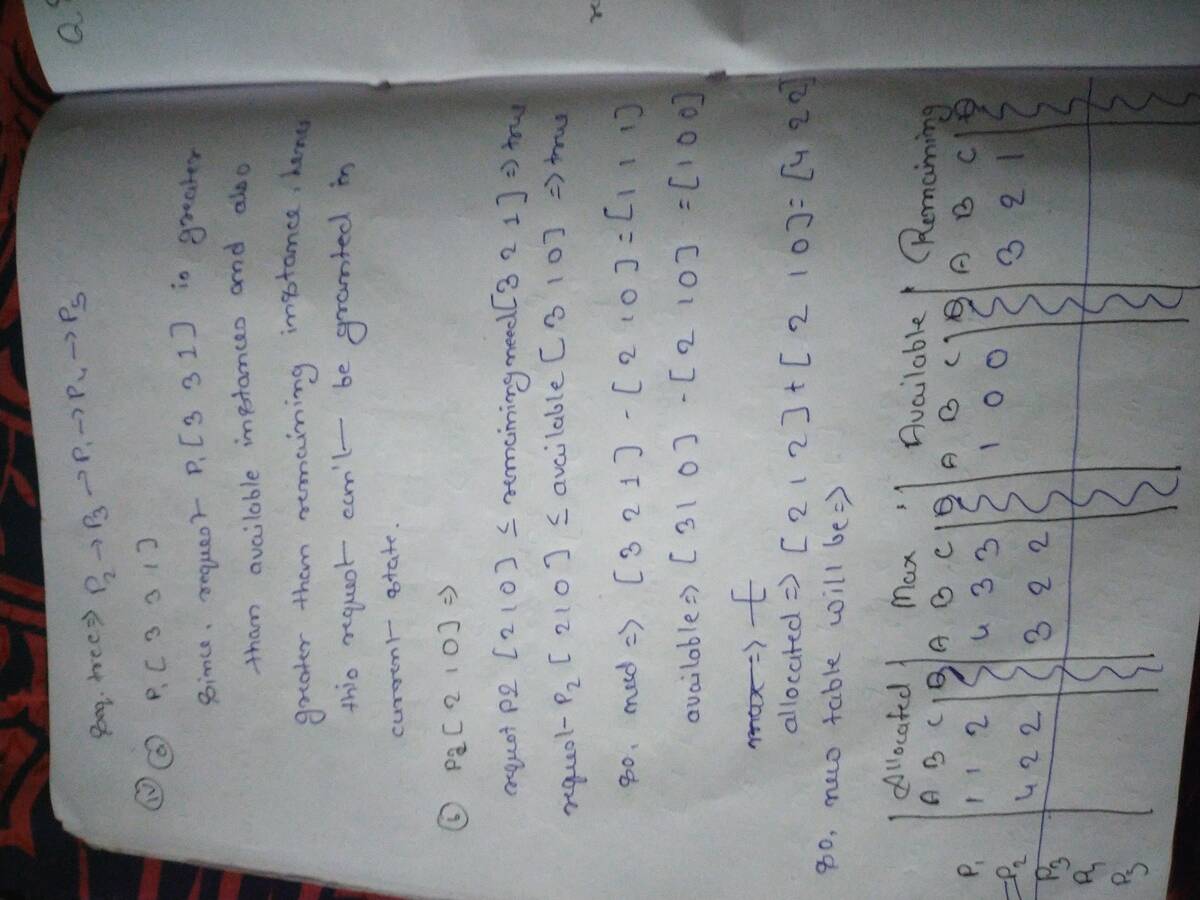 Seq. tree => P2 → P3 → P1 → P4 → P5
(iv) (a) P1 [ 3 3 1 ]
Since, request P1 [ 3 3 1 ] is greater
than available instances and also
greater than remaining instance, hence
this request can't be granted in
current state.
(b) P2 [ 2 1 0 ] =>
request P2 [ 2 1 0 ] ≤ remaining need [ 3 2 1 ] => true
request P2 [ 2 1 0 ] ≤ available [ 3 1 0 ] => true
So, need => [ 3 2 1 ] - [ 2 1 0 ] = [ 1 1 1 ]
available => [ 3 1 0 ] - [ 2 1 0 ] = [ 1 0 0 ]
max => [
allocated => [ 2 1 2 ] + [ 2 1 0 ] = [ 4 2 2 ]
So, new table will be =>
Allocated Max Available Remaining
A B C D A B C D A B C D A B C D
P1 1 1 2 4 3 3 1 0 0 3 2 1
P2 4 2 2 3 2 2
P3
P4
P5
Q